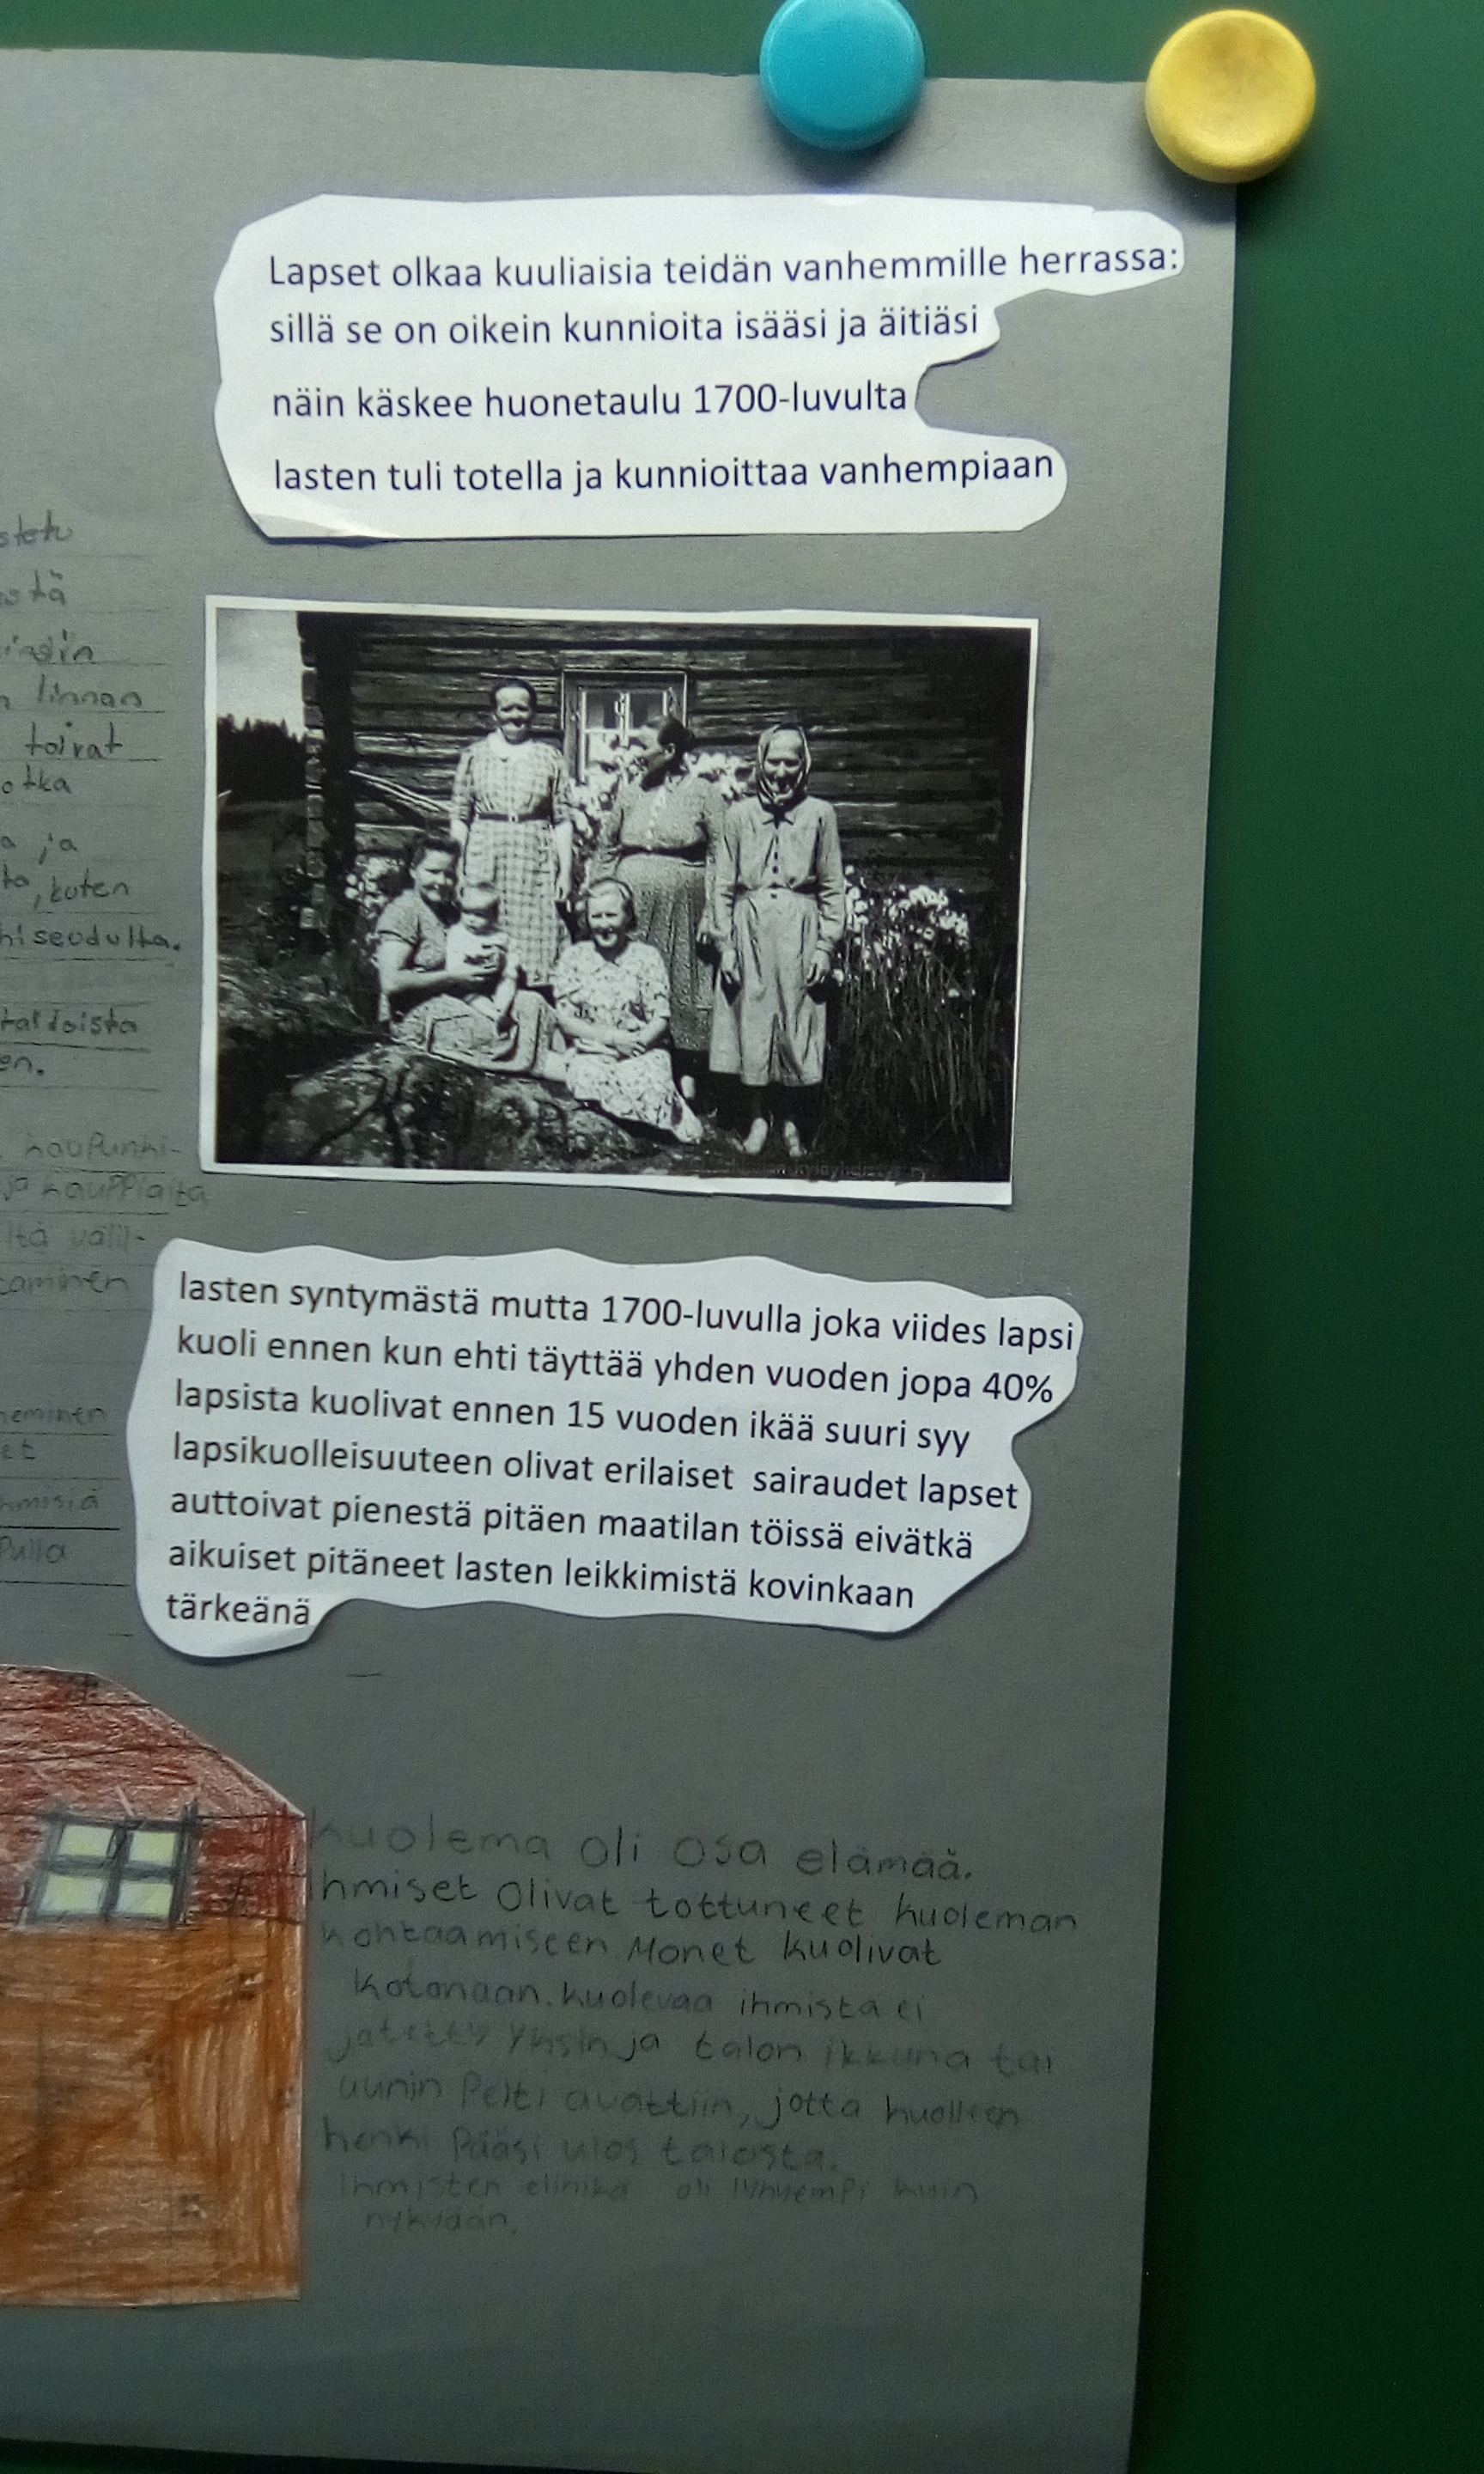 Lapset olkaa kuuliaisia teidän vanhemmille herrassa:
sillä se on oikein kunnioita isääsi ja äitiäsi
näin käskee huonetaulu 1700-luvulta
lasten tuli totella ja kunnioittaa vanhempiaan
stä
linnan
toivat
otka
ja
kuten
hiseudulta.
en.
kaupunki-
ja kauppiaita
ltä väli-
taminen
neminen
et
hmisiä
Pulla
lasten syntymästä mutta 1700-luvulla joka viides lapsi
kuoli ennen kun ehti täyttää yhden vuoden jopa 40%
lapsista kuolivat ennen 15 vuoden ikää suuri syy
lapsikuolleisuuteen olivat erilaiset sairaudet lapset
auttoivat pienestä pitäen maatilan töissä eivätkä
aikuiset pitäneet lasten leikkimistä kovinkaan
tärkeänä
kuolema oli osa elämää.
Ihmiset olivat tottuneet kuoleman
kohtaamiseen Monet kuolivat
kotonaan. kuolevaa ihmistä ei
jätetty yksin ja talon ikkuna tai
uunin Pelti avattiin, jotta kuolleen
henki Pääsi ulos talosta.
Ihmisten elinikä oli lyhyempi kuin
nykyään.